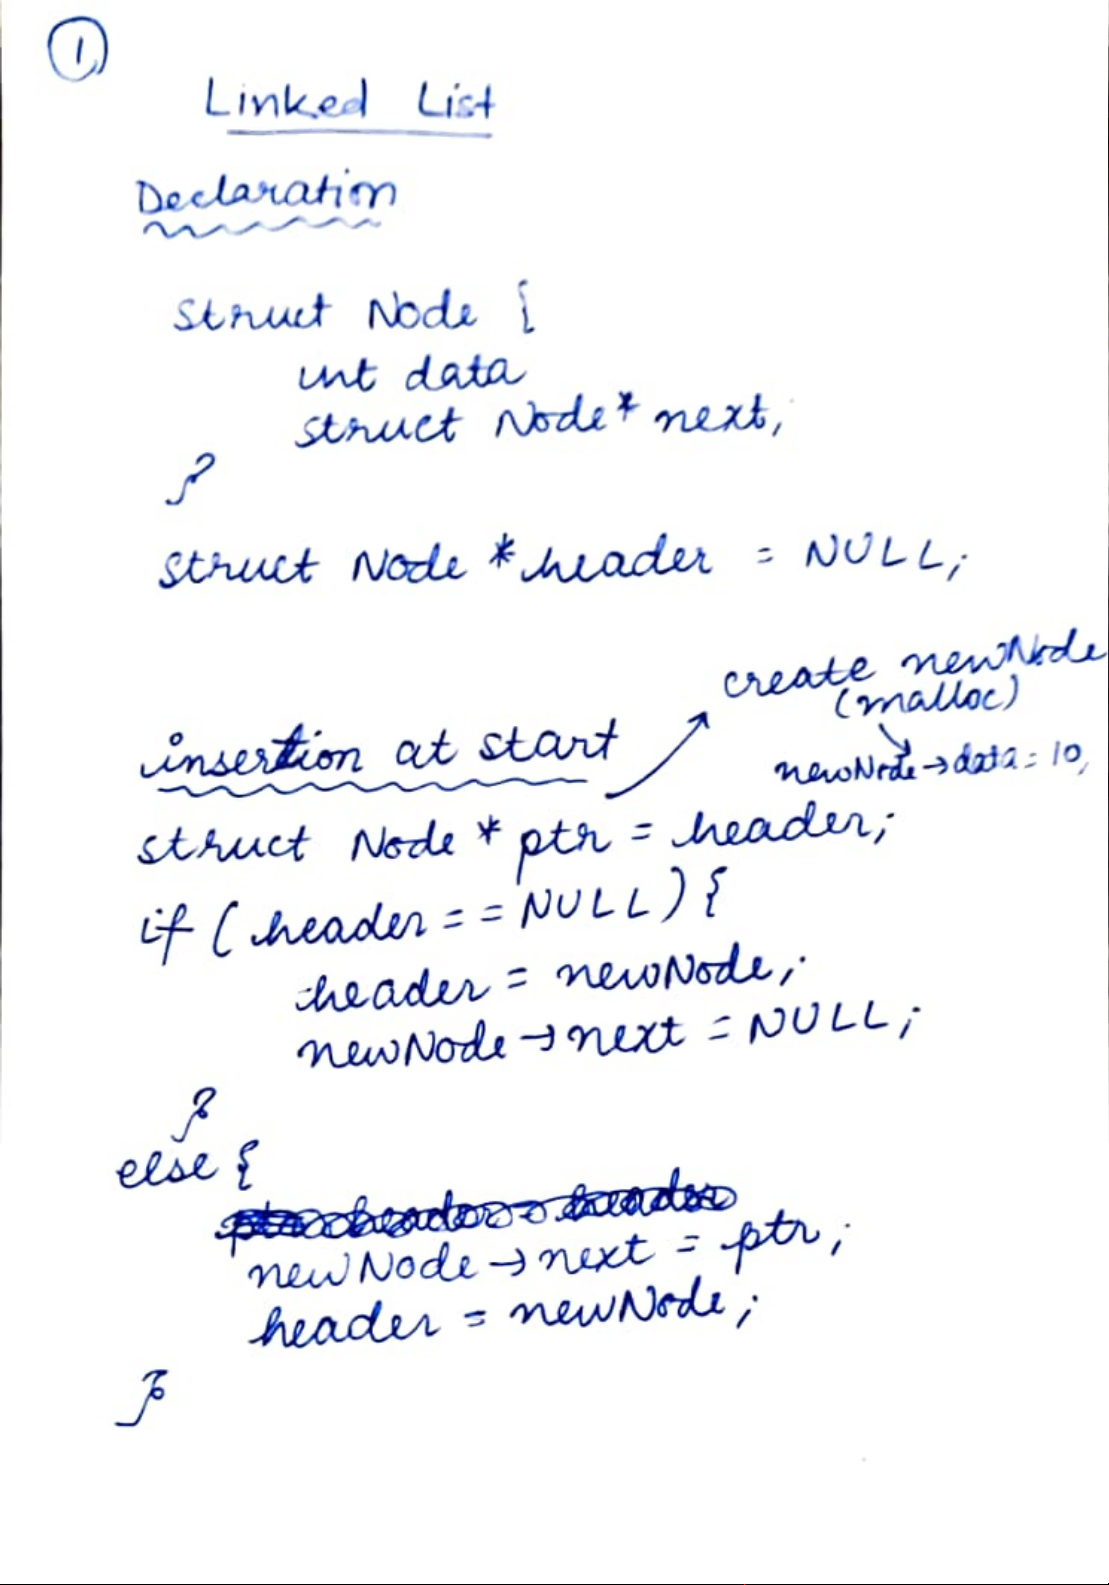 1
Linked List
Declaration
struct Node {
int data
struct Node* next;
}
struct Node *header = NULL;
create newNode
(malloc)
newNode→data = 10;
insertion at start
struct Node * ptr = header;
if (header == NULL) {
header = newNode;
newNode→next = NULL;
}
else {
newNode→next = ptr;
header = newNode;
}